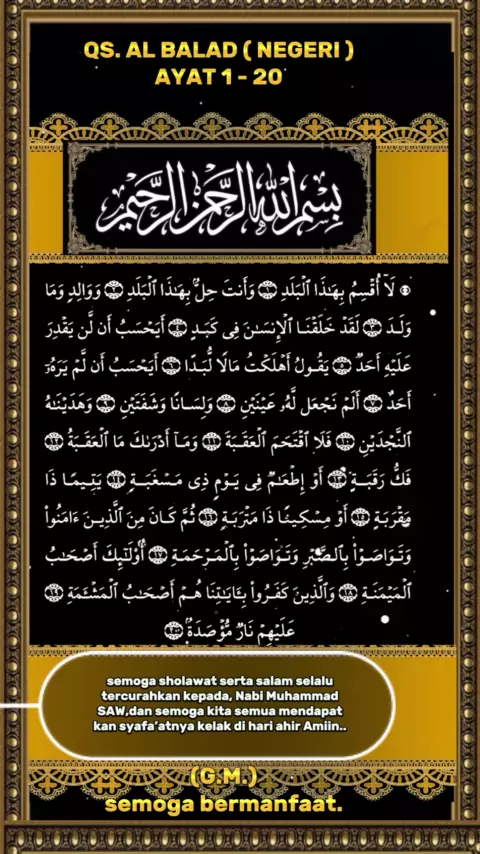 QS. AL BALAD ( NEGERI )
AYAT 1 - 20
بِسْمِ اللَّهِ الرَّحْمَٰنِ الرَّحِيمِ
لَآ أُقْسِمُ بِهَـٰذَا الْبَلَدِ ١ وَأَنتَ حِلٌّۢ بِهَـٰذَا الْبَلَدِ ٢ وَوَالِدٍ وَمَا
وَلَدَ ٣ لَقَدْ خَلَقْنَا الْإِنسَـٰنَ فِى كَبَدٍ ٤ أَيَحْسَبُ أَن لَّن يَقْدِرَ
عَلَيْهِ أَحَدٌ ٥ يَقُولُ أَهْلَكْتُ مَالًا لُّبَدًا ٦ أَيَحْسَبُ أَن لَّمْ يَرَهُۥٓ
أَحَدٌ ٧ أَلَمْ نَجْعَل لَّهُۥ عَيْنَيْنِ ٨ وَلِسَانًا وَشَفَتَيْنِ ٩ وَهَدَيْنَـٰهُ
النَّجْدَيْنِ ١٠ فَلَا اقْتَحَمَ الْعَقَبَةَ ١١ وَمَآ أَدْرَىٰكَ مَا الْعَقَبَةُ ١٢
فَكُّ رَقَبَةٍ ١٣ أَوْ إِطْعَـٰمٌ فِى يَوْمٍ ذِى مَسْغَبَةٍ ١٤ يَتِيمًا ذَا
مَقْرَبَةٍ ١٥ أَوْ مِسْكِينًا ذَا مَتْرَبَةٍ ١٦ ثُمَّ كَانَ مِنَ الَّذِينَ ءَامَنُوا۟
وَتَوَاصَوْا۟ بِالصَّبْرِ وَتَوَاصَوْا۟ بِالْمَرْحَمَةِ ١٧ أُو۟لَـٰٓئِكَ أَصْحَـٰبُ
الْمَيْمَنَةِ ١٨ وَالَّذِينَ كَفَرُوا۟ بِـَٔايَـٰتِنَا هُمْ أَصْحَـٰبُ الْمَشْـَٔمَةِ ١٩
عَلَيْهِمْ نَارٌ مُّؤْصَدَةٌۢ ٢٠
semoga sholawat serta salam selalu
tercurahkan kepada, Nabi Muhammad
SAW,dan semoga kita semua mendapat
kan syafa'atnya kelak di hari ahir Amiin..
(G.M.)
semoga bermanfaat.